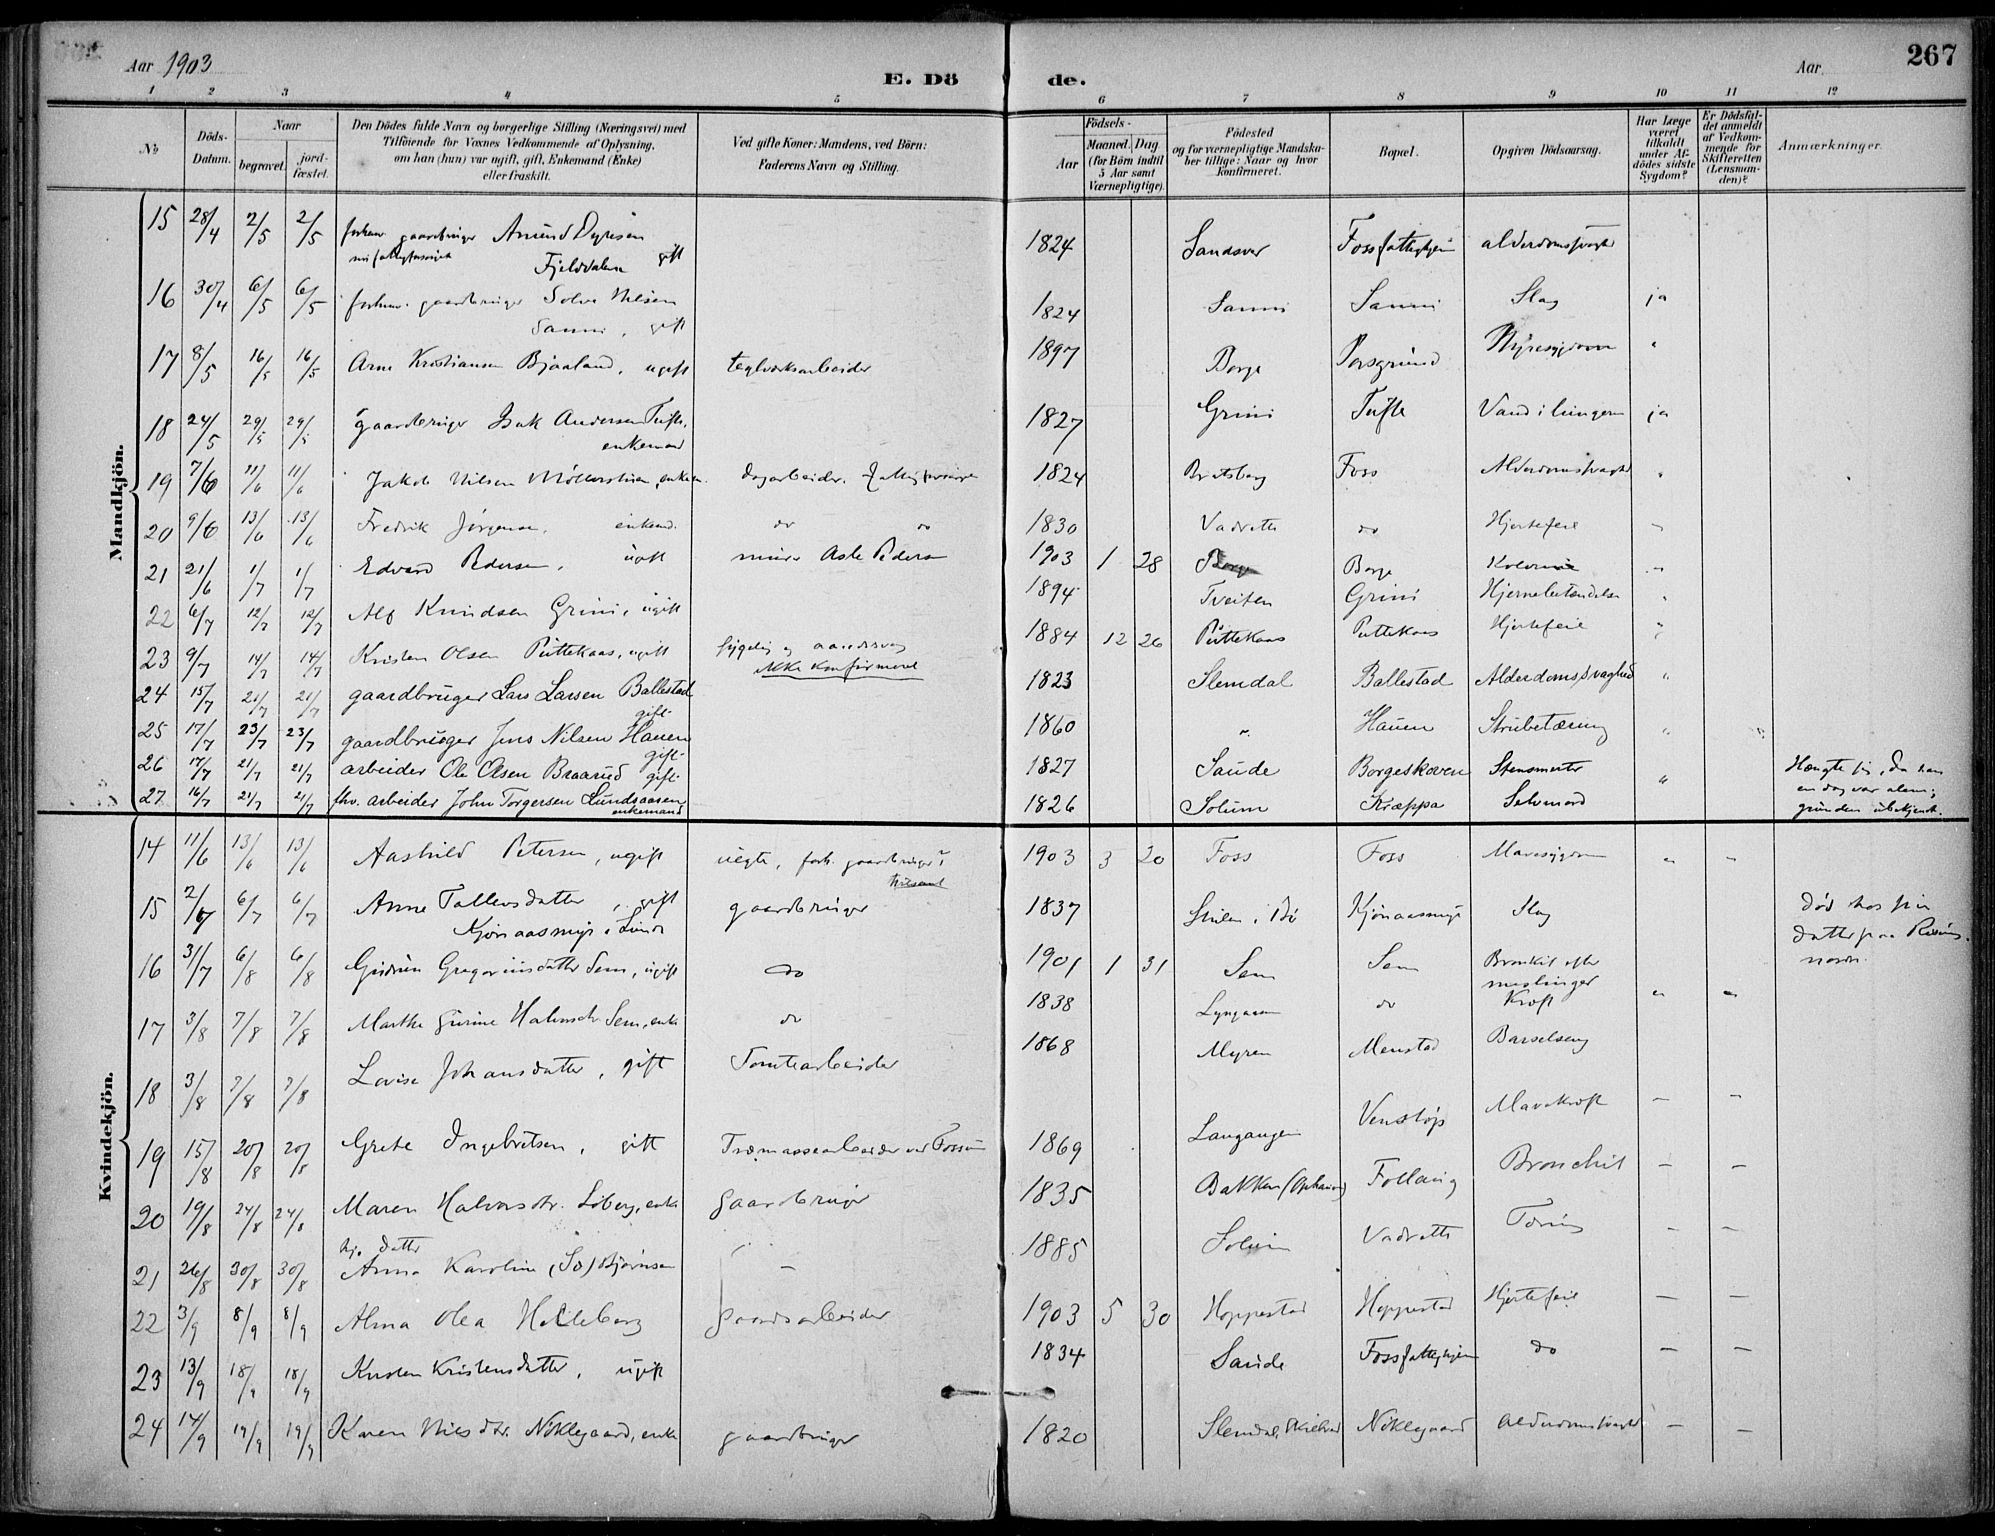 Aar 1903
E. Dö
de.
Aar
267
1 2 3 4 5 6 7 8 9 10 11 12
No
Döds-Datum.
Naar
begravet.
jord-fæstet.
Den Dödes fulde Navn og borgerlige Stilling (Næringsvei) med
Tilföiende for Voxnes Vedkommende af Oplysning,
om han (hun) var ugift, gift, Enkemand (Enke)
eller fraskilt.
Ved gifte Koner: Mandens, ved Börn:
Faderens Navn og Stilling.
Födsels-
Aar
Maaned. Dag
(for Börn indtil
5 Aar samt
Værnepligtige).
Födested
og for værnepligtige Mandska-
ber tillige: Naar og hvor
konfirmeret.
Bopæl.
Opgiven Dödsaarsag.
Har Læge
været
tilkaldt
under Af-
dödes sidste
Sygdom?
Er Dödsfal-
det anmeldt
af Vedkom-
mende for
Skifteretten
(Lensman-
den)?
Anmærkninger.
Mandkjön.
15 28/4 2/5 2/5 forhenv gaardbruger Amund Dyresen 1824 Sandsvær Foss fattighjem alderdomssvaghed
Fjelddalen gift
16 30/4 6/5 6/5 forhenv. gaardbruger Solve Nilsen 1824 Sanni Sanni Slag ja
Sanni, gift
17 8/5 16/5 16/5 Arne Kristiansen Bjaaland, ugift teglverksarbeider 1897 Borge Porsgrund Nyresygdom "
18 24/5 29/5 29/5 gaardbruger Isak Andersen Tufte, 1827 Grini Tufte Vand i lungerne ja
enkemand
19 7/6 11/6 11/6 Jakob Nilsen Möllerstuen, enkem. dagarbeider. 1824 Bratsberg Foss Alderdomssvaghed "
20 9/6 13/6 13/6 Fredrik Jørgensen, enkemd. do do 1830 Vadrette do Hjertefeil "
21 21/6 1/7 1/7 Edvard Pedersen, ugift murer Asle Pedersen 1903 1 28 Borge Borge Kolerine "
22 6/7 12/7 12/7 Alf Knudsen Grini, ugift 1894 Tveiten Grini Hjernebetændelse "
23 9/7 14/7 14/7 Kristen Olsen Puttekaas, ugift sygelig og aandssvag 1884 12 26 Puttekaas Puttekaas Hjertefeil "
ikke konfirmeret
24 15/7 21/7 21/7 gaardbruger Lars Larsen Ballestad 1823 Slemdal Ballestad Alderdomssvaghed "
gift.
25 17/7 23/7 23/7 gaardbruger Jens Nilsen Hauen 1860 " Hauen Strubetæring "
gift.
26 17/7 21/7 21/7 arbeider Ole Olsen Braarud gift. 1827 Saude Borgeskoven Stensmerter "
27 16/7 21/7 21/7 fhv. arbeider John Torgersen Lundsaasen 1826 Solum Kræppa Selvmord
enkemand
Hængte sig, da han
en dag var alene;
grunden ubekjendt.
Kvindekjön.
14 11/6 13/6 13/6 Aashild Petersen, ugift uegte, forh. gaardbruger 1903 3 20 Foss Foss Mavesygdom " "
15 2/7 6/7 6/7 Anne Tollevsdatter, gift gaardbruger 1837 i Bö Kjönaasmyr Slag
Kjönaasmyr i Lunde
død hos sin
datter paa
16 31/7 6/8 6/8 Gudrun Gregoriusdatter Sem, ugift do 1901 1 31 Sem Sem Bronkit efter
meslinger
17 3/8 7/8 7/8 Marthe Gurine Halvorsdtr. Sem, enke do 1838 Lyngaasen do Kræft " "
18 3/8 7/8 7/8 Lovise Johansdatter, gift Tomtearbeider 1868 Myren Menstad Barselseng
19 15/8 20/8 20/8 Grete Ingebretsen, gift Træmassearbeider ved Fossum 1869 Langangen Venstöp Mavekræft — —
20 19/8 24/8 24/8 Maren Halvorsdtr. Loberg, enke gaardbruger 1835 Bakken Follaug Bronchit — —
21 26/8 30/8 30/8 Anna Karoline (So) Bjørnsen — 1885 Solum Vadrette Tæring — —
datter
22 3/9 8/9 8/9 Alma Olea Holleborg gaardsarbeider 1903 5 30 Hoppestad Hoppestad Hjertefeil — —
23 13/9 18/9 18/9 Kirsten Kristensdatter, ugift 1834 Saude Foss fattighjem do — —
24 14/9 19/9 19/9 Karen Nilsdtr. Nöklegaard, enke gaardbruger 1820 Slemdal, Nöklegaard Alderdomssvaghed — —